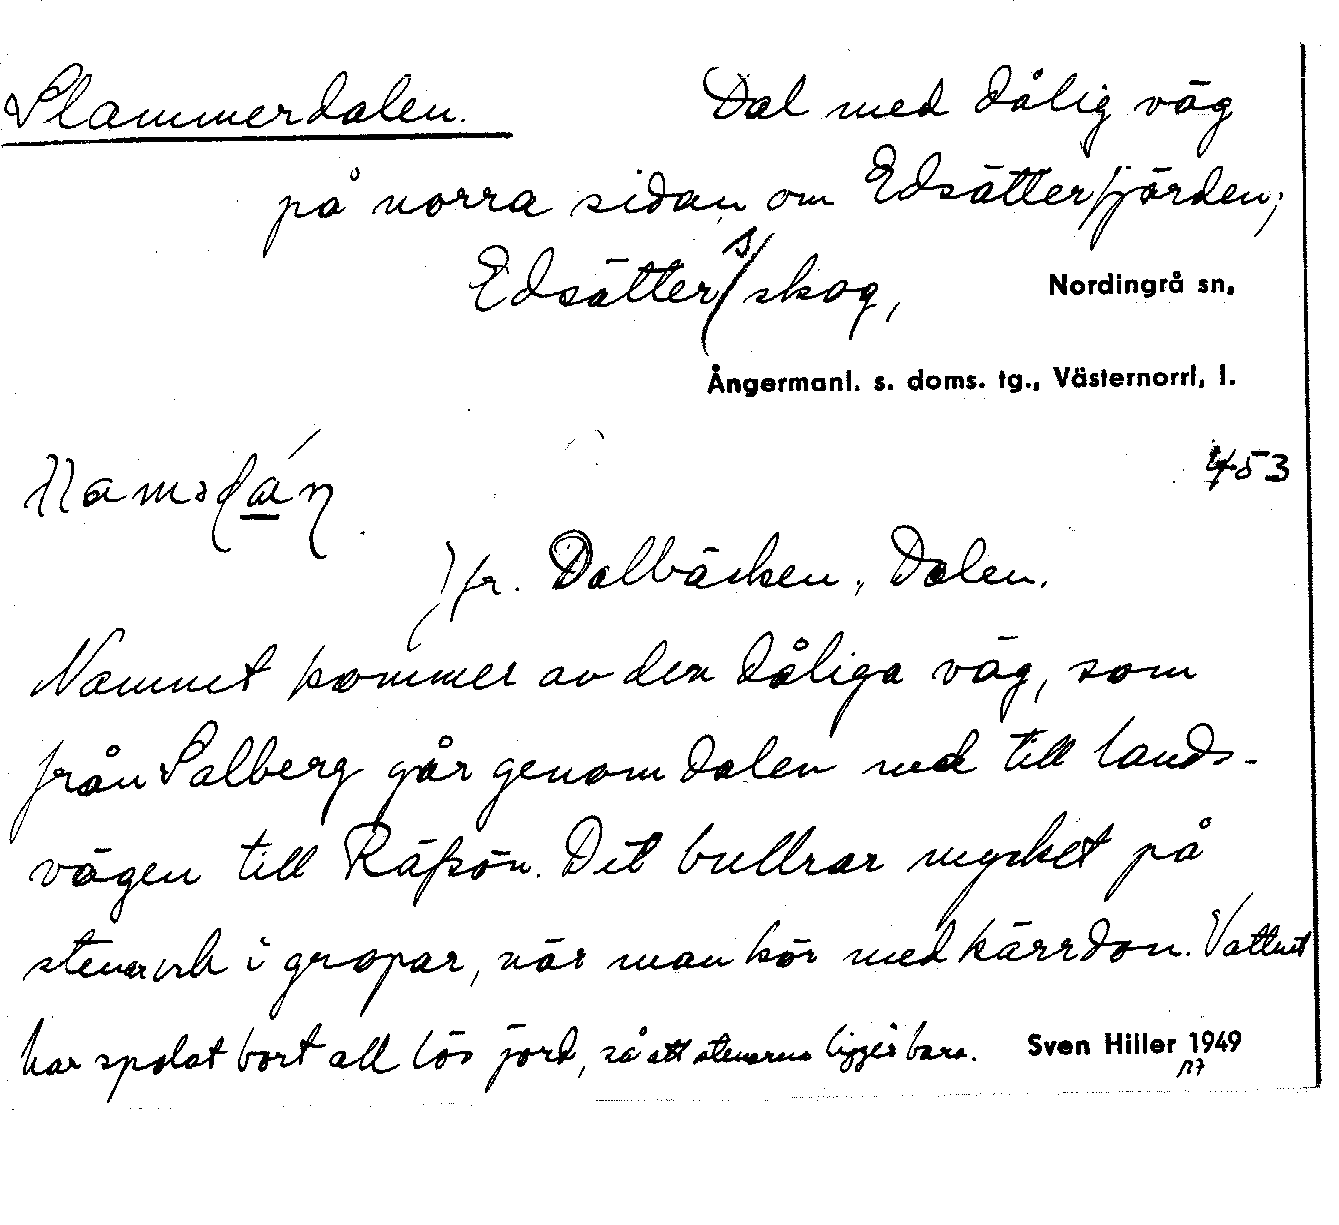 Slammerdalen. Dal med dålig väg
på norra sidan om Edsätterfjärden,
Edsätters/skog, Nordingrå sn,
Ångermanl. s. doms. tg., Västernorrl, l.
453
Jfr. Dalbäcken, Dalen.
Namnet kommer av den dåliga väg, som
från Salberg går genom dalen ned till lands-
vägen till Räfsön. Det bullrar mycket på
stenar och i gropar, när man kör med kärrdon. Vattnet
har spolat bort all lös jord, så att stenarna ligger bara. Sven Hiller 1949